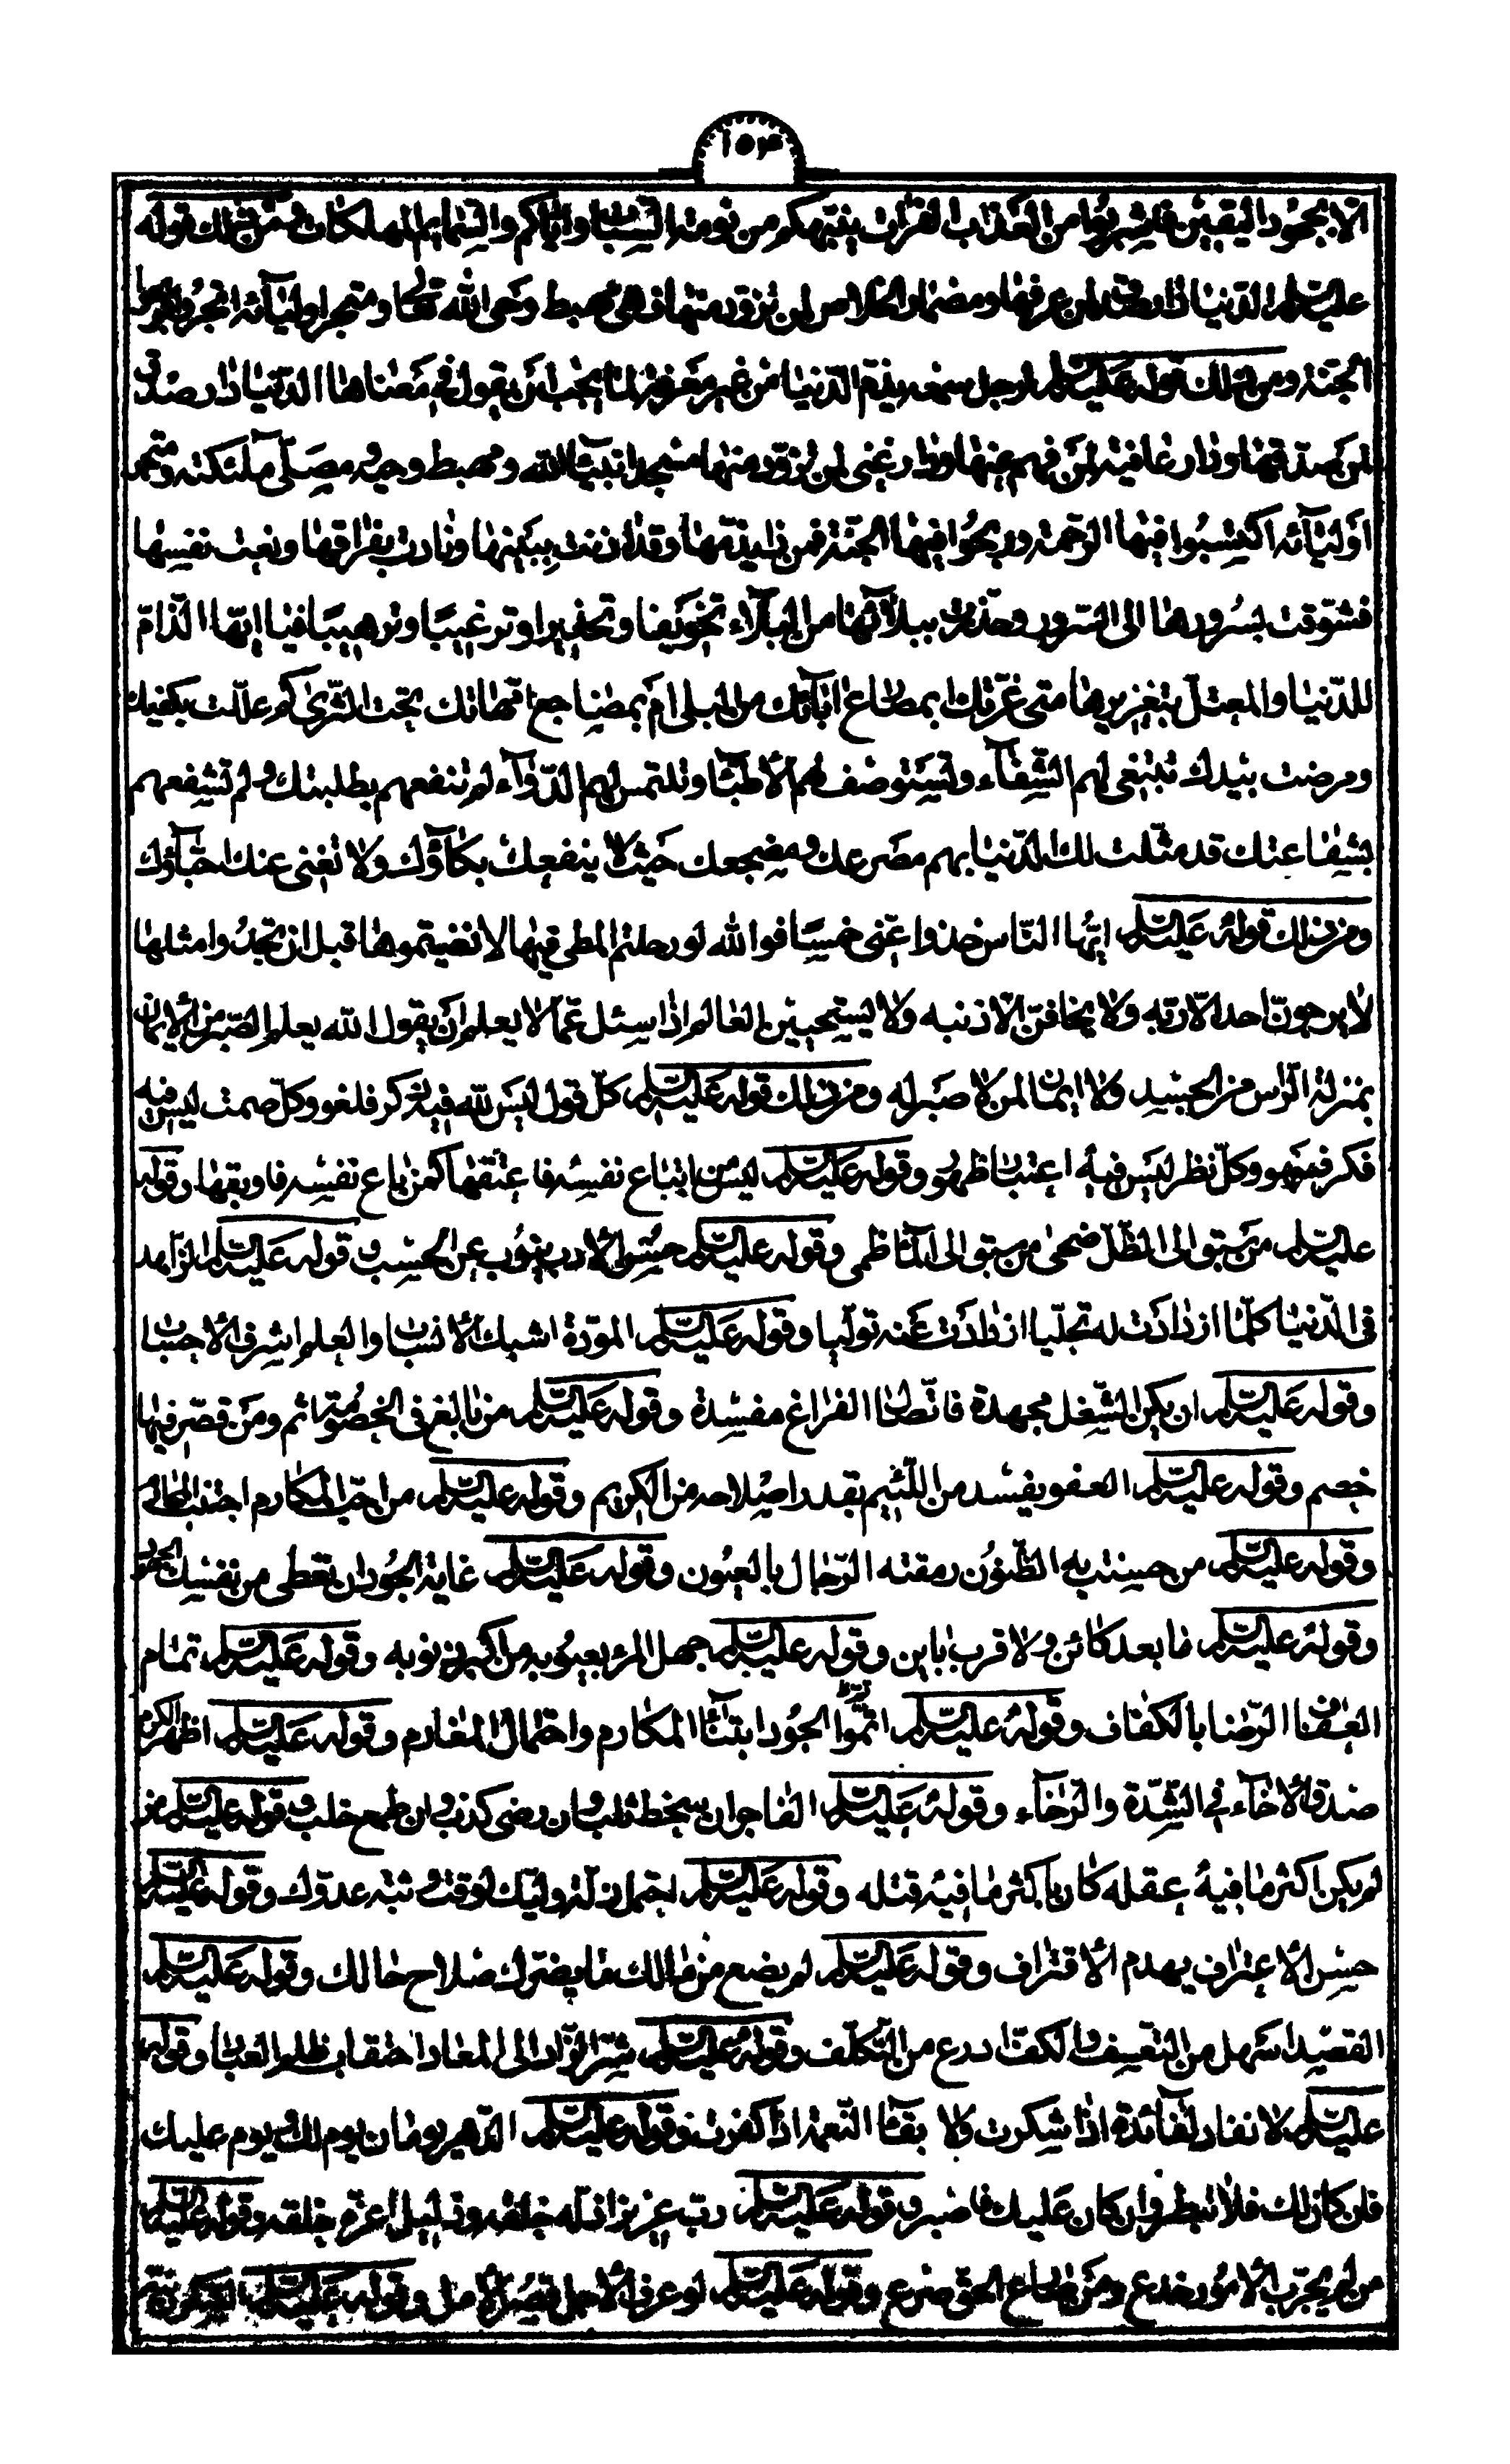 ١٥٣
الا بجحود اليقين فابشروا من العذاب القران ينبهكم من نومة السبات واياكم والشبهات المهلكات ومن ذلك قوله
عليه السلام الدنيا دار صدق لمن عرفها ومضمار الخلاص لمن تزود منها هي مهبط وحى الله تعالى ومتجر اوليائه اتجروا فربحوا
الجنة ومن ذلك قوله عليه السلام لرجل سمعه يذم الدنيا من غير معرفة لما يجب ان يقول في معناها الدنيا دار صدق
لمن صدقها ودار عافية لمن فهم عنها ودار غنى لمن تزود منها مسجد انبياء الله ومهبط وحيه ومصلى ملئكته ومتجر
اوليائه اكتسبوا فيها الرحمة وربحوا فيها الجنة فمن ذا يذمها وقد اذنت ببينها ونادت بفراقها ونعت نفسها
فشوقت بسرورها الى السرور وحذرت ببلائها من البلاء تخويفا وتحذيرا وترغيبا وترهيبا فيا ايها الذام
للدنيا والمعتل بتغريرها متى غرتك ابمصارع ابائك من البلى ام بمضاجع امهاتك تحت الثرى كم عللت بكفيك
ومرضت بيدك تبتغى لهم الشفاء وتستوصف لهم الاطباء وتلتمس لهم الدواء لم تنفعهم بطلبتك ولم تشفعهم
بشفاعتك قد مثلت لك الدنيا بهم مصرعك ومضجعك حيث لا ينفعك بكاؤك ولا تغنى عنك احباؤك
ومن ذلك قوله عليه السلام ايها الناس خذوا عنى خمسا فوالله لو رحلتم المطى فيها لانضيتموها قبل ان تجدوا مثلها
لا يرجون احد الا ربه ولا يخافن الا ذنبه ولا يستحيين العالم اذا سئل عما لا يعلم ان يقول الله يعلم الصبر من الايمان
بمنزلة الراس من الجسد ولا ايمان لمن لا صبر له ومن ذلك قوله عليه السلام كل قول ليس لله فيه ذكر فلغو وكل صمت ليس فيه
فكر فسهو وكل نظر ليس فيه اعتبار فلهو وقوله عليه السلام ليس من ابتاع نفسه فاعتقها كمن باع نفسه فاوبقها وقوله
عليه السلام من سبق الى الظل ضحى ومن سبق الى الماء ظمى وقوله عليه السلام حسن الادب ينوب عن الحسب وقوله عليه السلام الزاهد
في الدنيا كلما ازدادت له تجليا ازداد عنه توليا وقوله عليه السلام المودة اشبك الانساب والعلم اشرف الاحساب
وقوله عليه السلام ان يكن الشغل مجهدة فاتصال الفراغ مفسدة وقوله عليه السلام من بالغ في الخصومة اثم ومن قصر فيها
خصم وقوله عليه السلام العفو يفسد من اللئيم بقدر اصلاحه من الكريم وقوله عليه السلام من احب المكارم اجتنب المحارم
وقوله عليه السلام من حسنت به الظنون رمقته الرجال بالعيون وقوله عليه السلام غاية الجود ان تعطى من نفسك المجهود
وقوله عليه السلام ما بعد كائن ولا قرب باين وقوله عليه السلام جهل المرء بعيوبه من اكبر ذنوبه وقوله عليه السلام تمام
العفاف الرضا بالكفاف وقوله عليه السلام اتم الجود ابتناء المكارم واحتمال المغارم وقوله عليه السلام اظهر الكرم
صدق الاخاء في الشدة والرخاء وقوله عليه السلام الفاجر ان سخط ثلب وان رضى كذب وان طمع خلب وقوله عليه السلام من
لم يكن اكثر ما فيه عقله كان باكثر ما فيه قتله وقوله عليه السلام احتمل زلة وليك لوقت وثبة عدوك وقوله عليه السلام
حسن الاعتراف يهدم الاقتراف وقوله عليه السلام لم يضع من مالك ما بصرك صلاح حالك وقوله عليه السلام
القصد اسهل من التعسف والكف اورع من التكلف وقوله عليه السلام شر الزاد الى المعاد احتقاب ظلم العباد وقوله
عليه السلام لا نفاد لفائدة اذا شكرت ولا بقاء لنعمة اذا كفرت وقوله عليه السلام الدهر يومان يوم لك ويوم عليك
فان كان لك فلا تبطر وان كان عليك فاصبر وقوله عليه السلام رب عزيز اذله خلقه وذليل اعزه خلقه وقوله عليه السلام
من لم يجرب الامور خدع ومن صارع الحق صرع وقوله عليه السلام لو عرف الاجل قصر الامل وقوله عليه السلام